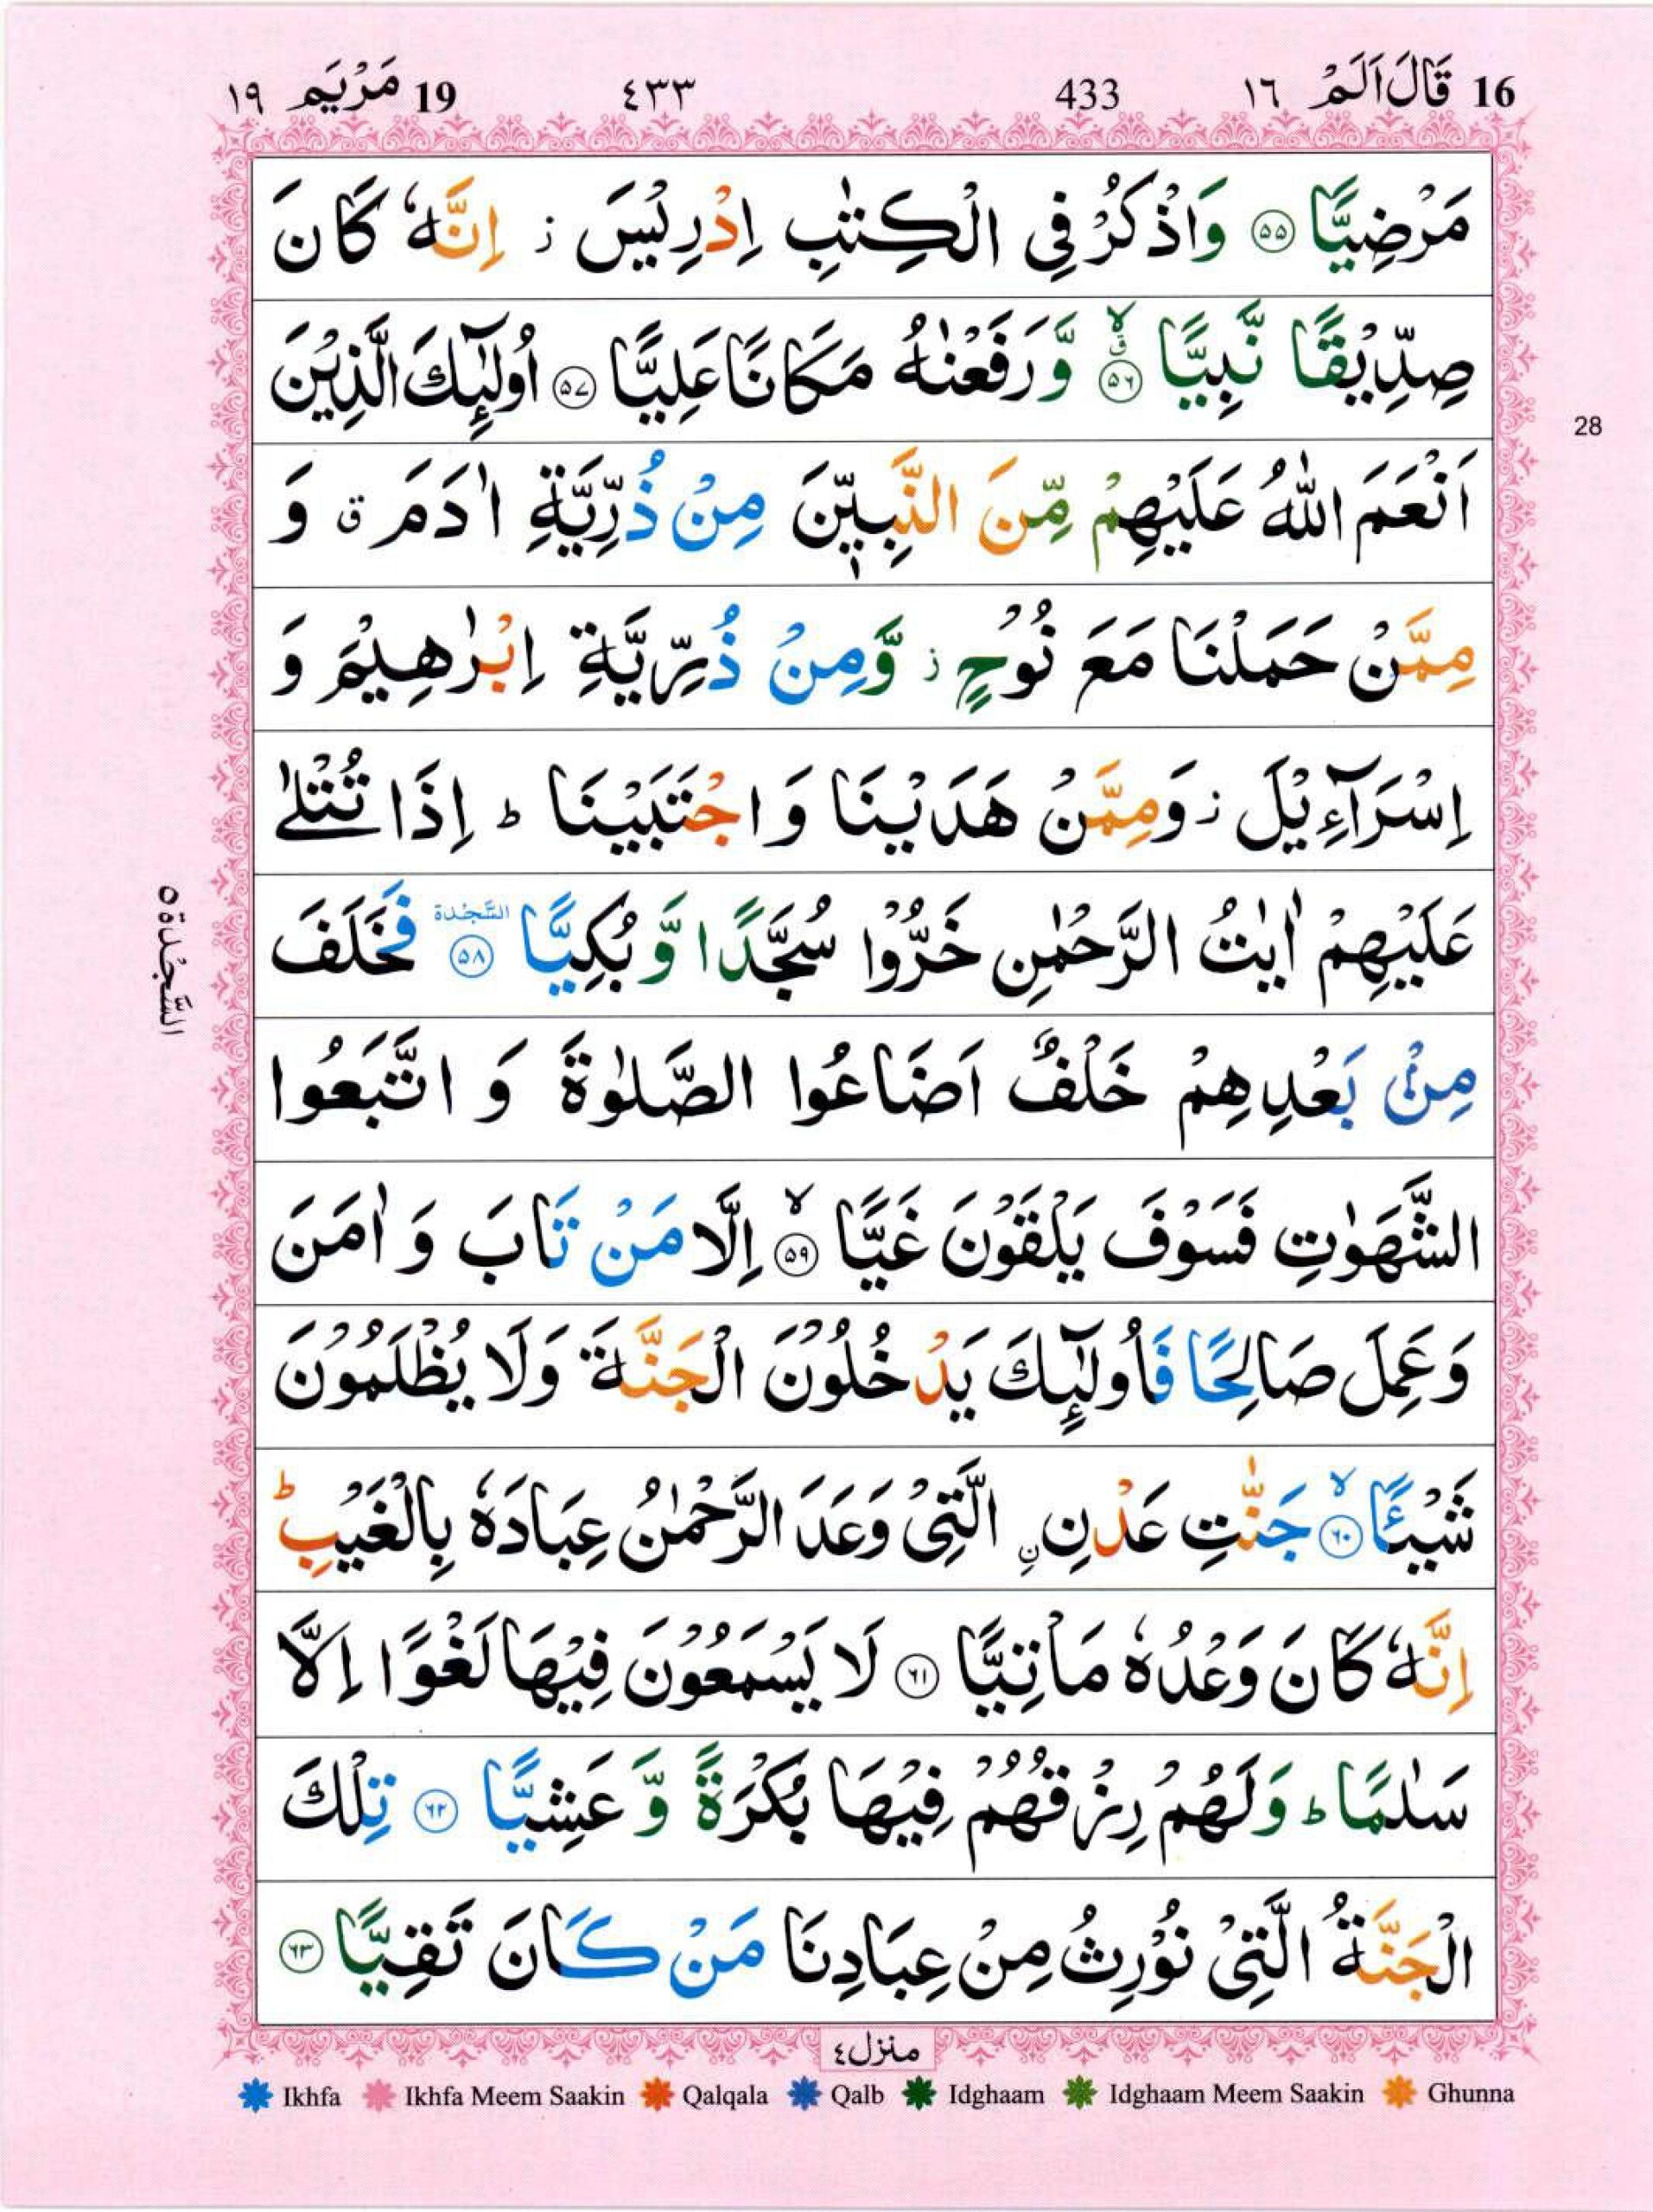 16 قَالَ اَلَمْ ١٦ 433 ٤٣٣ 19 مَرْيَم ١٩
مَرْضِيًّا ۝٥٥ وَاذْكُرْ فِی الْكِتٰبِ اِدْرِيْسَ ز اِنَّهٗ كَانَ
صِدِّيْقًا نَّبِيًّا ۝٥٦ ق لا وَّرَفَعْنٰهُ مَكَانًا عَلِيًّا ۝٥٧ اُولٰٓئِكَ الَّذِيْنَ
28
اَنْعَمَ اللّٰهُ عَلَيْهِمْ مِّنَ النَّبِيّٖنَ مِنْ ذُرِّيَّةِ اٰدَمَ ق وَ
مِمَّنْ حَمَلْنَا مَعَ نُوْحٍ ز وَّمِنْ ذُرِّيَّةِ اِبْرٰهِيْمَ وَ
اِسْرَآءِيْلَ ز وَمِمَّنْ هَدَيْنَا وَاجْتَبَيْنَا ط اِذَا تُتْلٰی
عَلَيْهِمْ اٰيٰتُ الرَّحْمٰنِ خَرُّوْا سُجَّدًا وَّبُكِيًّا ۝٥٨ السَّجْدة فَخَلَفَ
السَّجْدة ٥
مِنْۢ بَعْدِهِمْ خَلْفٌ اَضَاعُوا الصَّلٰوةَ وَاتَّبَعُوا
الشَّهَوٰتِ فَسَوْفَ يَلْقَوْنَ غَيًّا ۝٥٩ لا اِلَّا مَنْ تَابَ وَاٰمَنَ
وَعَمِلَ صَالِحًا فَاُولٰٓئِكَ يَدْخُلُوْنَ الْجَنَّةَ وَلَا يُظْلَمُوْنَ
شَيْـًٔا ۝٦٠ لا جَنّٰتِ عَدْنِ نِ الَّتِیْ وَعَدَ الرَّحْمٰنُ عِبَادَهٗ بِالْغَيْبِ ط
اِنَّهٗ كَانَ وَعْدُهٗ مَاْتِيًّا ۝٦١ لَا يَسْمَعُوْنَ فِيْهَا لَغْوًا اِلَّا
سَلٰمًا ط وَلَهُمْ رِزْقُهُمْ فِيْهَا بُكْرَةً وَّعَشِيًّا ۝٦٢ تِلْكَ
الْجَنَّةُ الَّتِیْ نُوْرِثُ مِنْ عِبَادِنَا مَنْ كَانَ تَقِيًّا ۝٦٣
منزل٤
Ikhfa Ikhfa Meem Saakin Qalqala Qalb Idghaam Idghaam Meem Saakin Ghunna